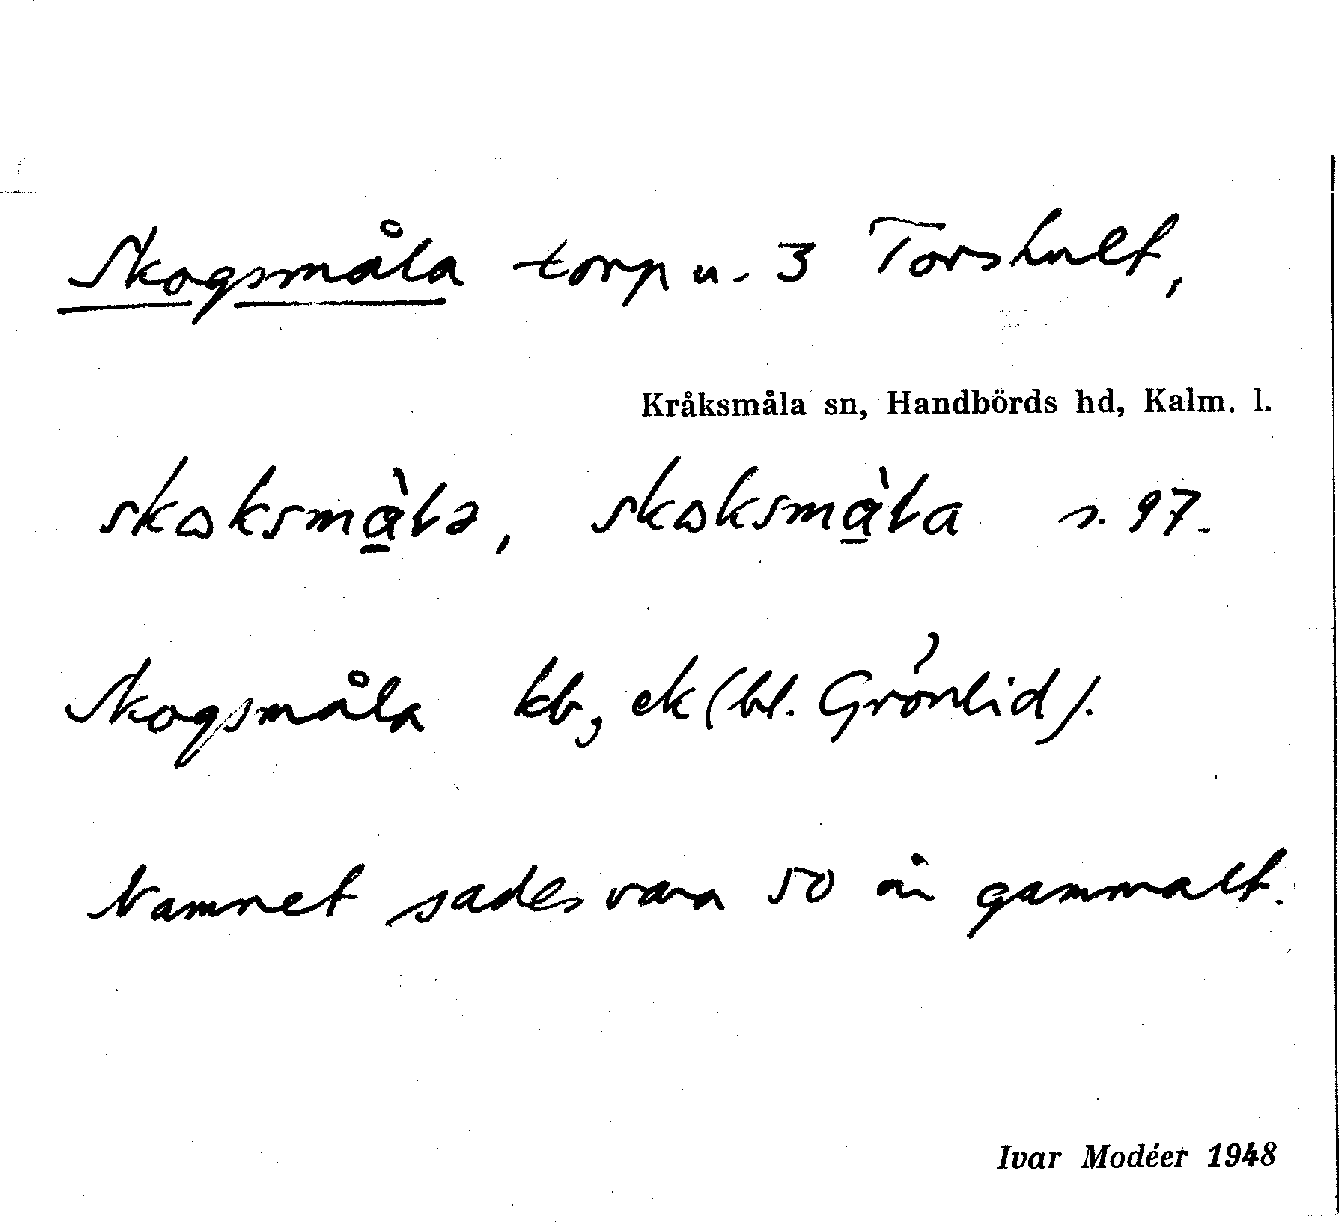 Skogsmåla torp u. 3 Torshult,
Kråksmåla sn, Handbörds hd, Kalm. l.
skɷksmàlə, skɷksmàla s. 97.
Skogsmåla kb, ek (bl. Grönlid).
Namnet sades vara 50 år gammalt.
Ivar Modéer 1948